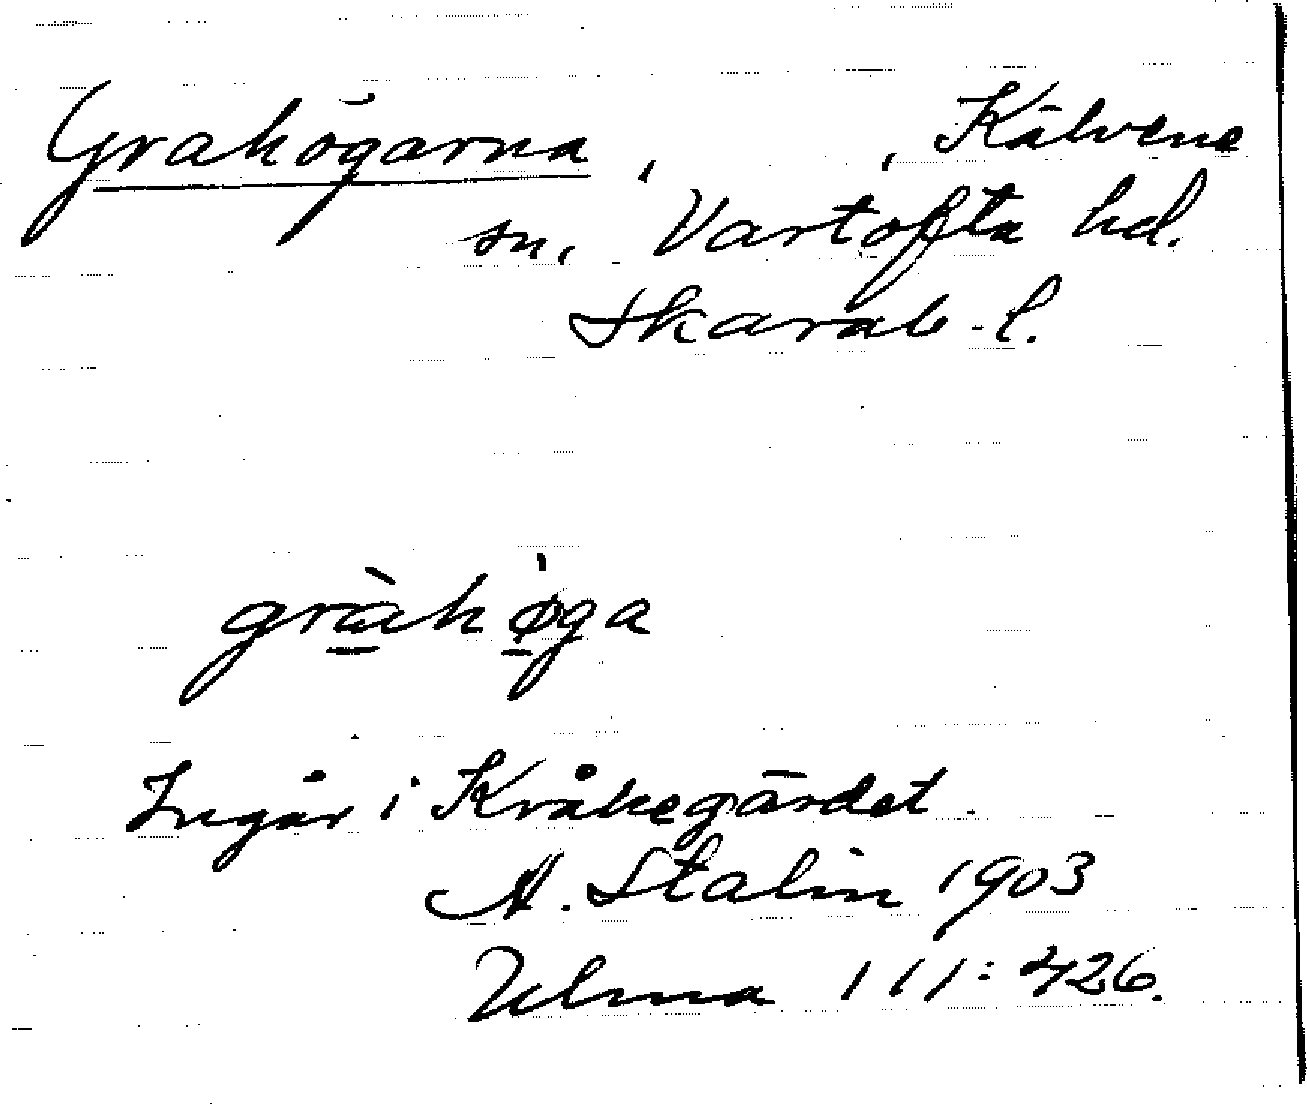 Grahögarna, , Kälvene
sn., Vartofta hd.
Skarab. l.
gràhø̀ga
Ingår i Kråkegärdet.
A. Stalin 1903
Ulma 111:426.